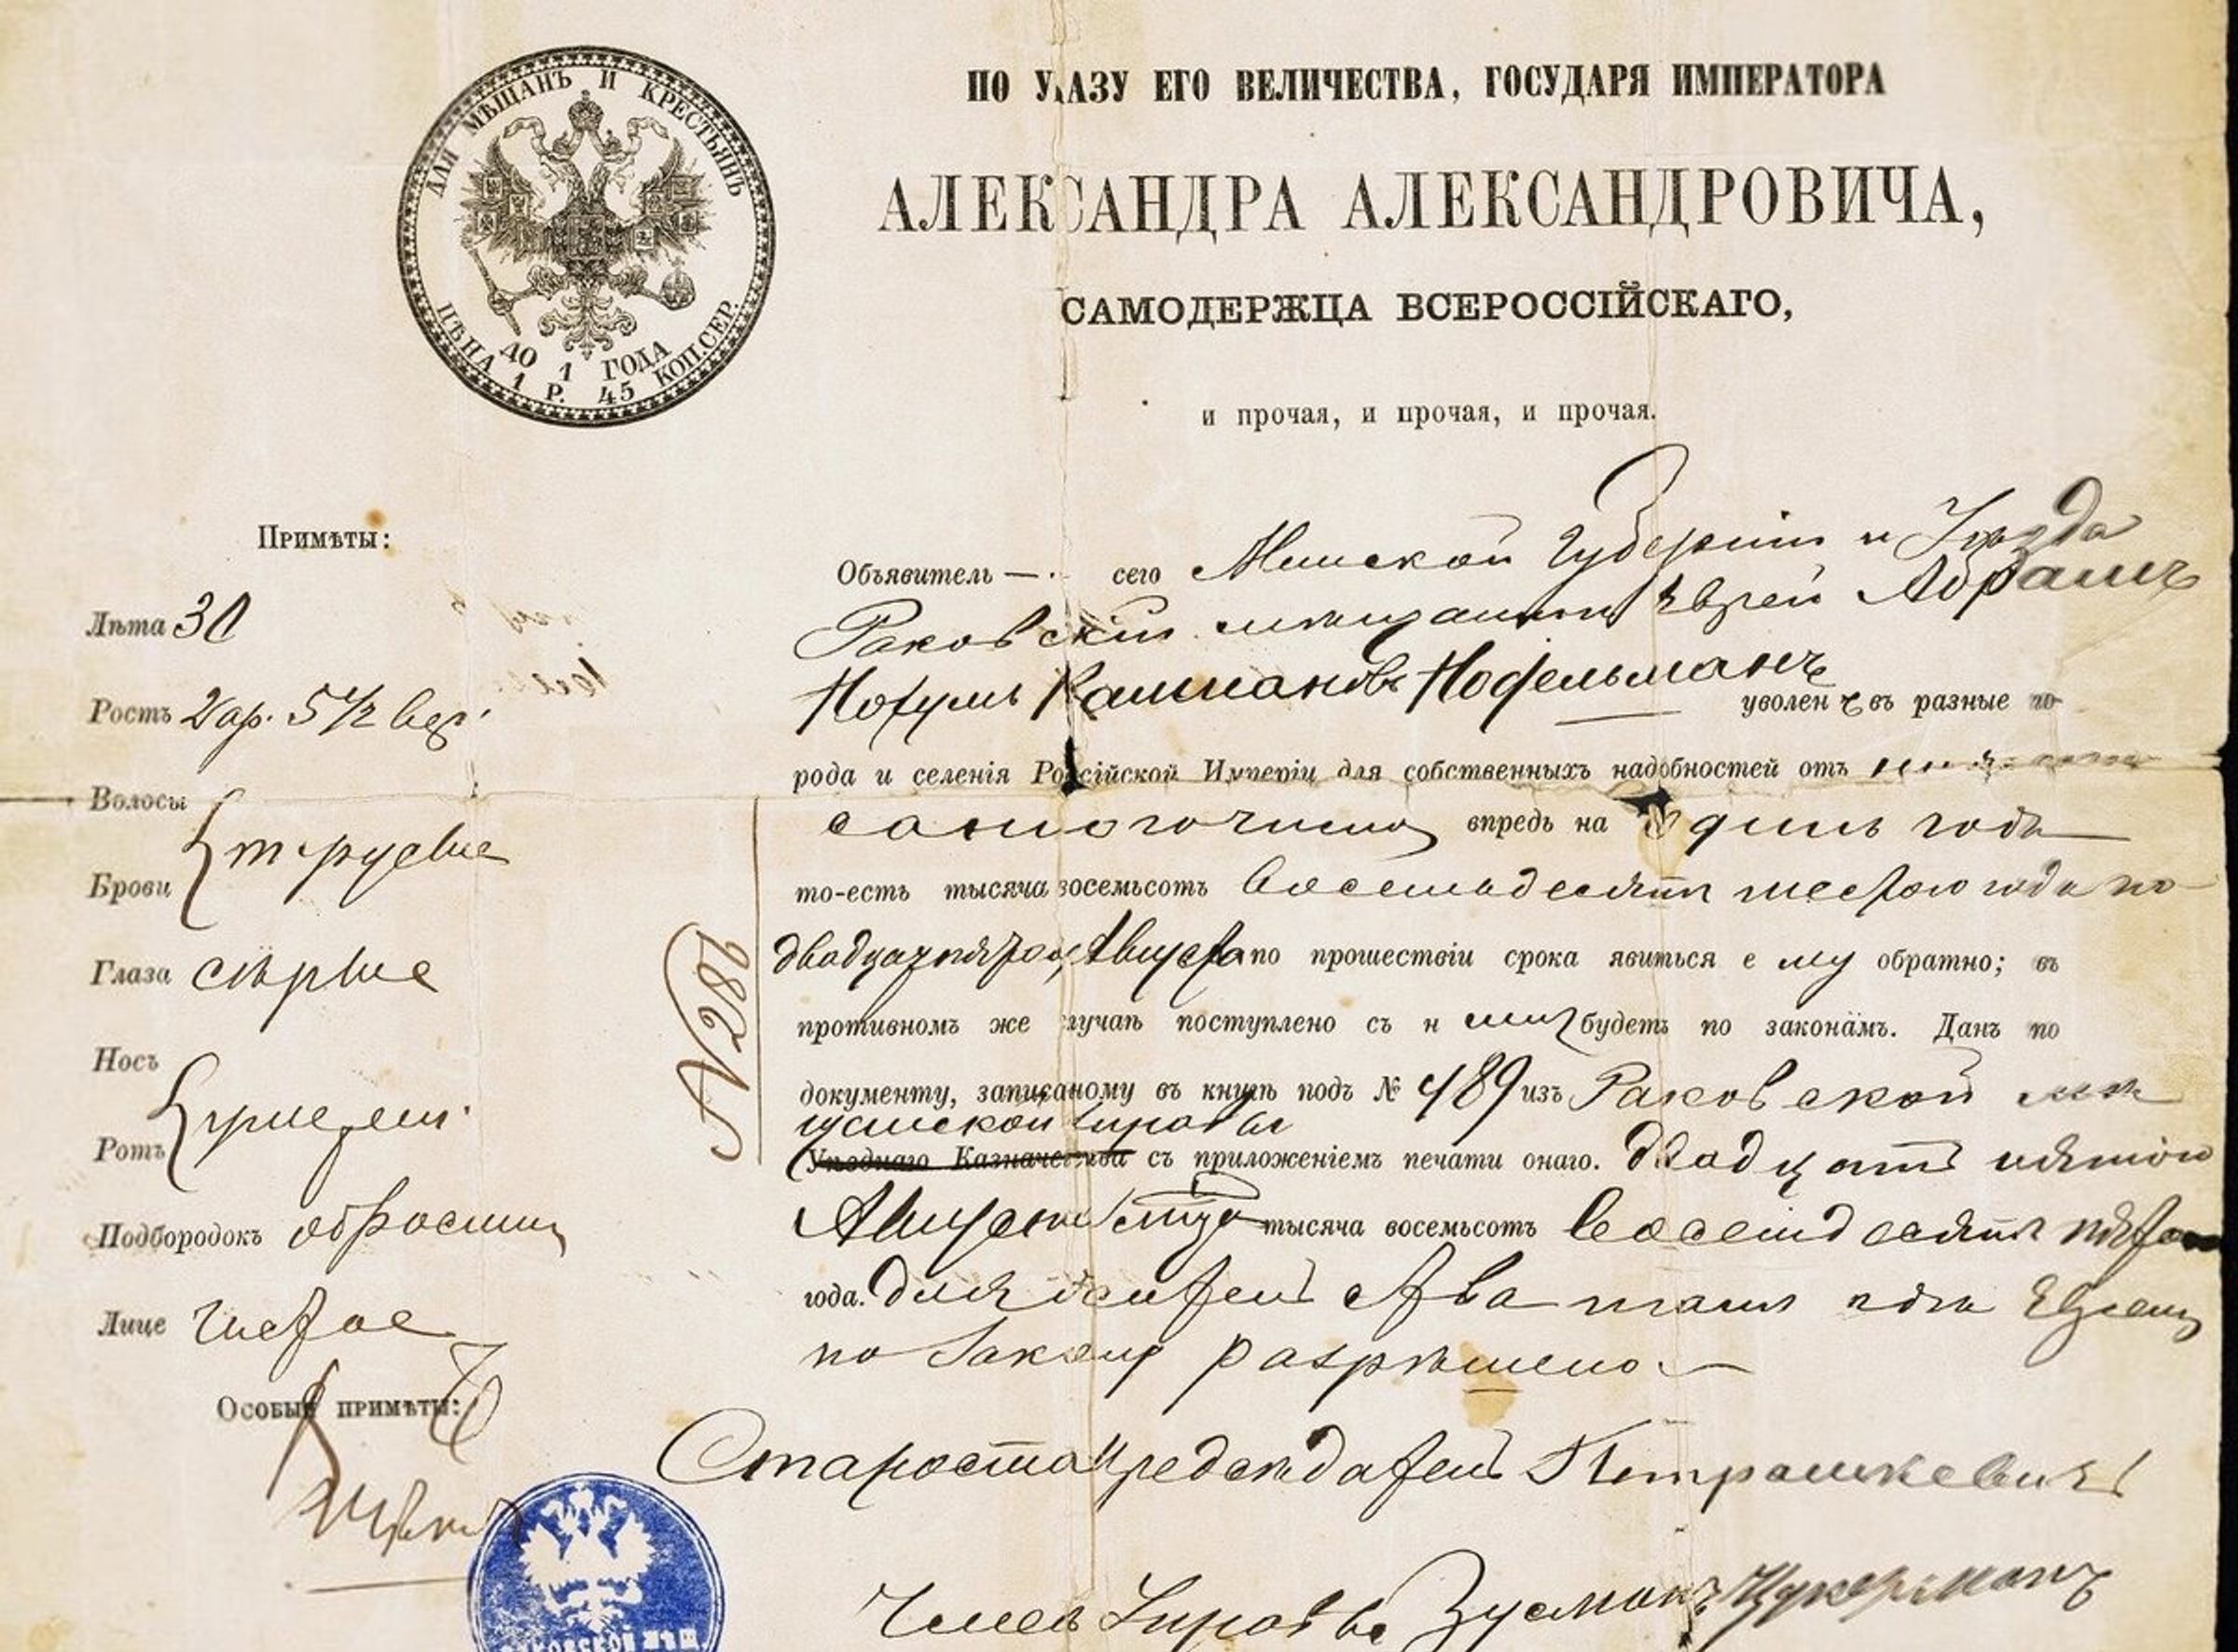 ДЛЯ МѢЩАНЪ И КРЕСТЬЯНЪ
ДО 1 ГОДА
ЦѢНА 1 Р. 45 КОП. СЕР.
ПО УКАЗУ ЕГО ВЕЛИЧЕСТВА, ГОСУДАРЯ ИМПЕРАТОРА
АЛЕКСАНДРА АЛЕКСАНДРОВИЧА,
САМОДЕРЖЦА ВСЕРОССІЙСКАГО,
и прочая, и прочая, и прочая.
Примѣты:
Лѣта 30
Ростъ 2 ар. 5 1/2 вер.
Волосы
Брови
Глаза сѣрые
Носъ
Ротъ
Подбородокъ
Лице чистое
Особыя примѣты:
N 286
Объявитель — сего Минской Губерніи и Уѣзда
Раковскій мѣщанинъ Еврей Абрамъ
Нохумъ Калмановъ Нофельманъ уволенъ въ разные го-
рода и селенія Россійской Имперіи для собственныхъ надобностей отъ
впредь на Одинъ годъ
то-есть тысяча восемьсотъ восемьдесятъ шестого года по
двадцатьпятое Августа по прошествіи срока явиться ему обратно; въ
противномъ же случаѣ поступлено съ нимъ будетъ по законамъ. Данъ по
документу, записаному въ книгѣ подъ № 489 изъ Раковской мѣ
щанской Управы
Уѣзднаго Казначейства съ приложеніемъ печати онаго. двадцать пятого
Августа тысяча восемьсотъ восемьдесятъ пятого
года. для жительства тамъ гдѣ Евреямъ
по Закону разрѣшено.—
Староста Предсѣдатель Петрашкевичъ
Членъ Управы Зусманъ Цукерманъ